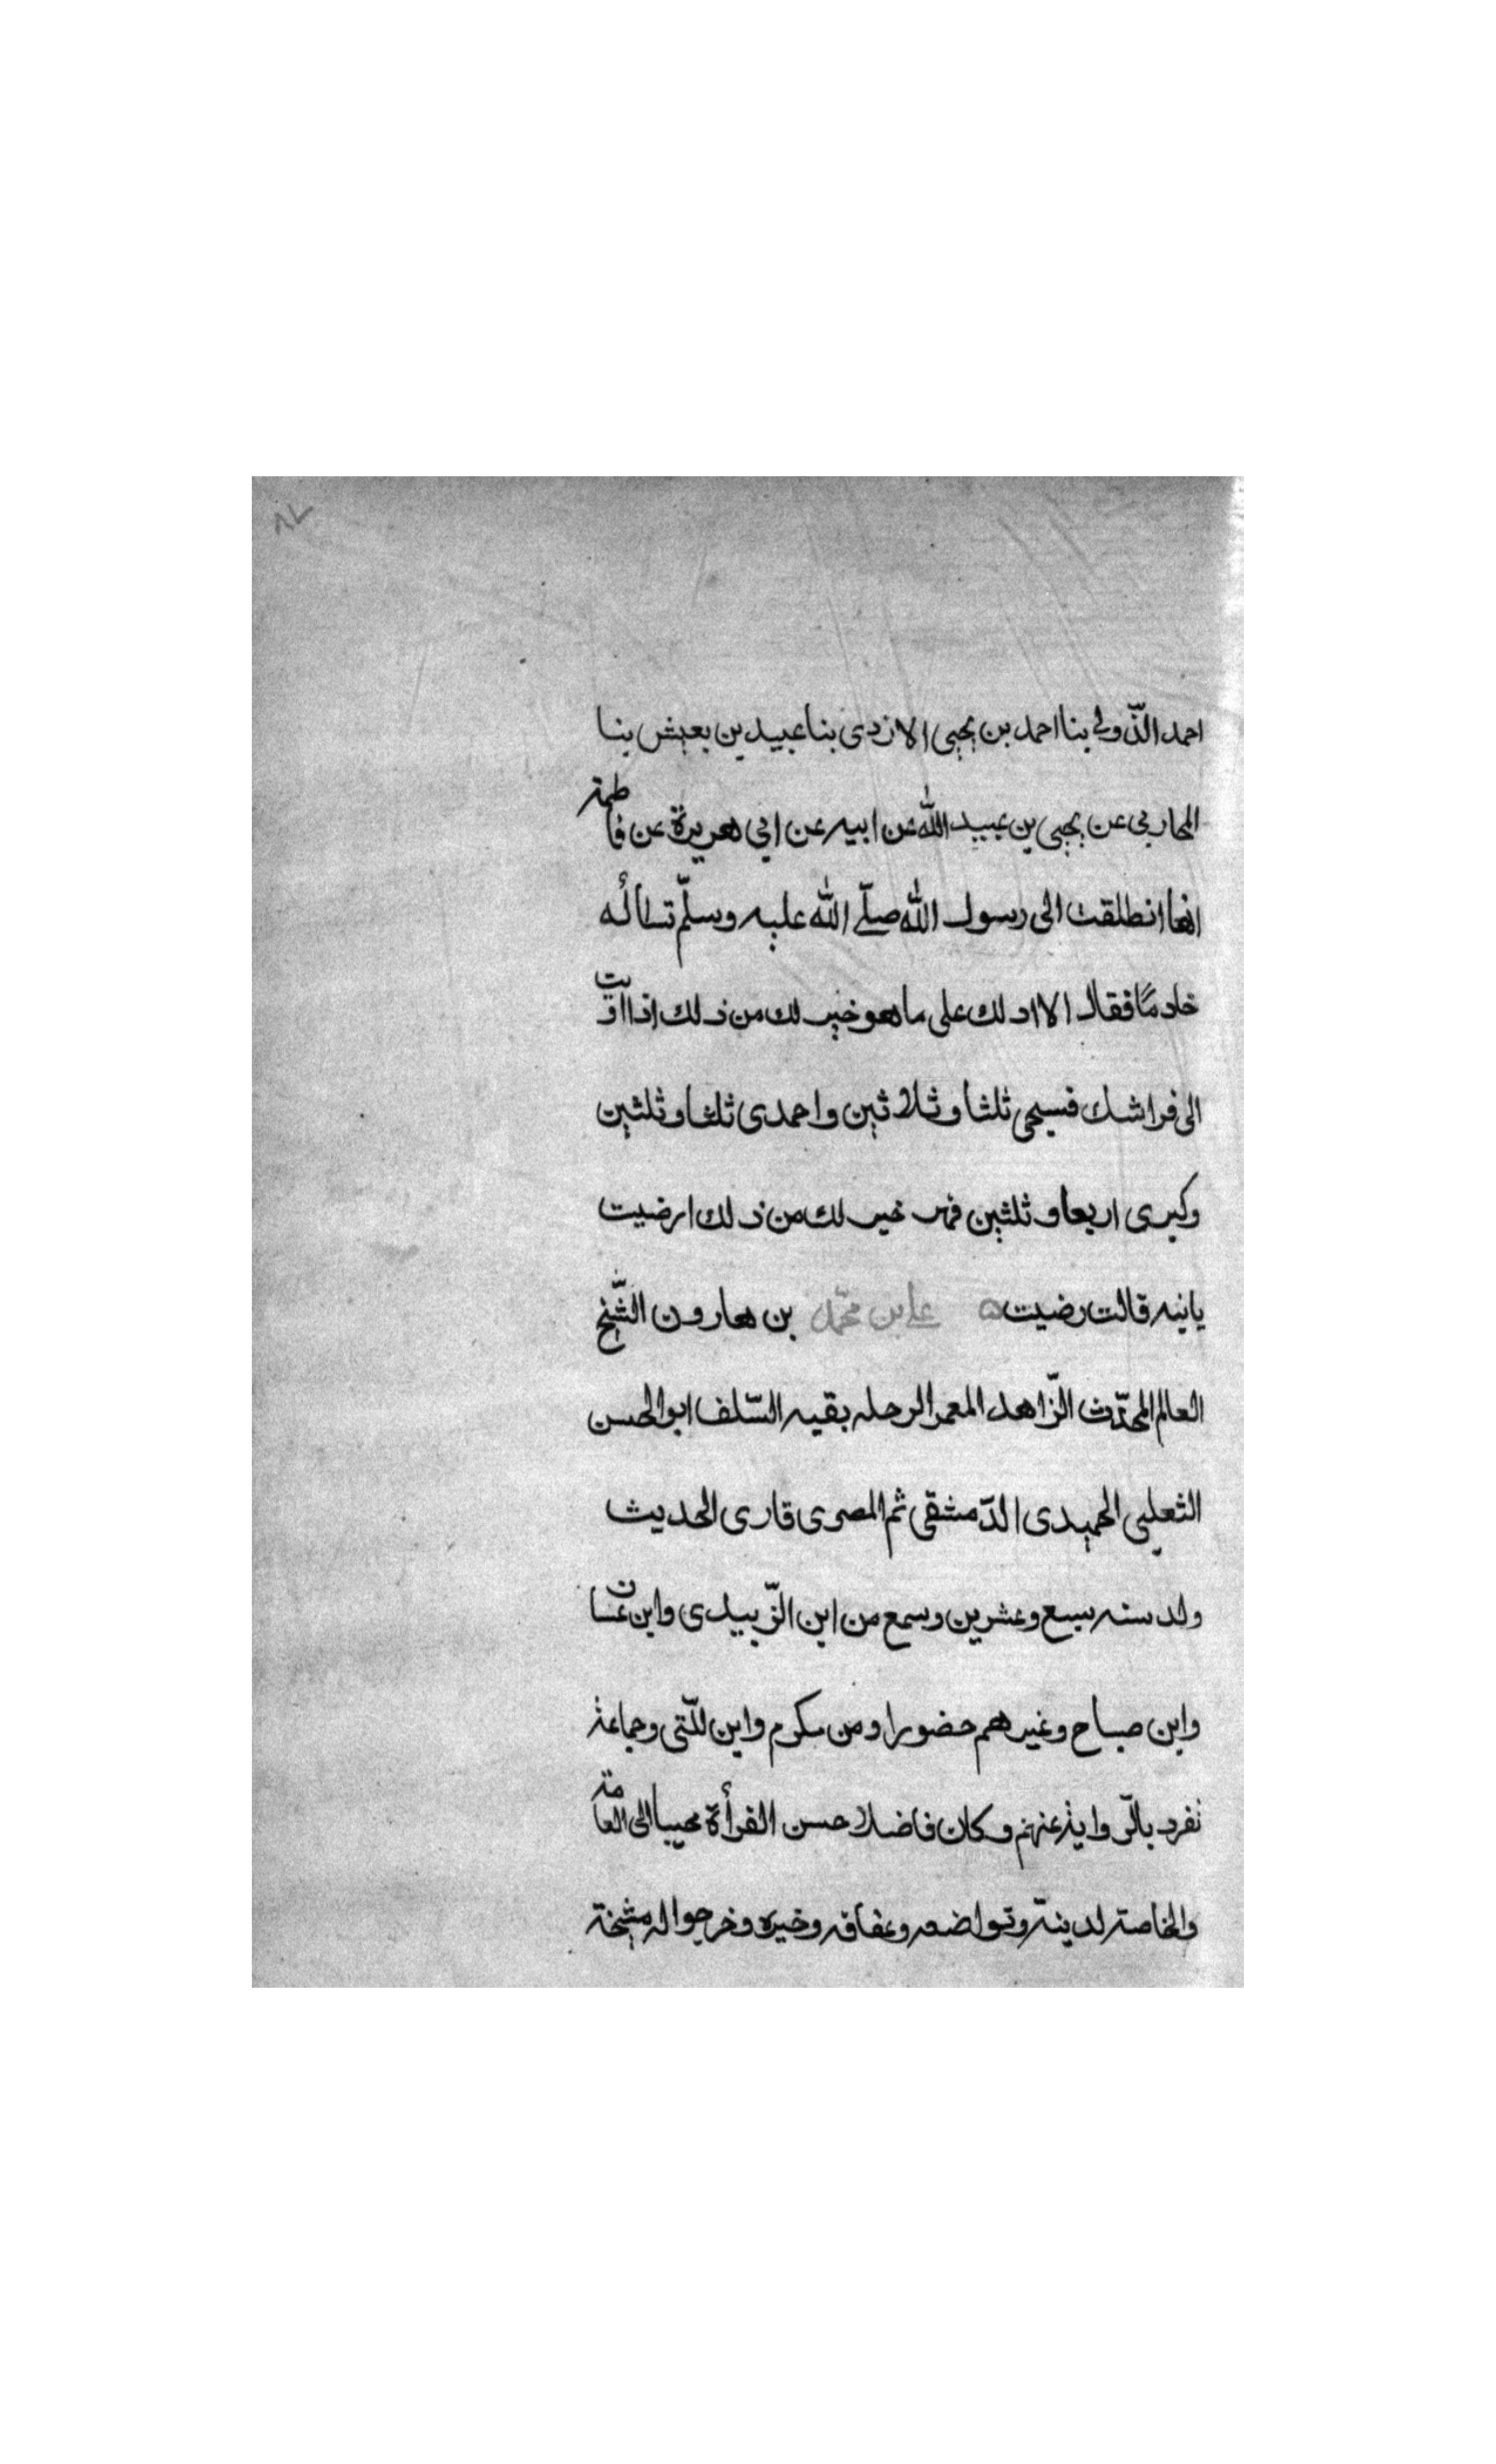 ٨٧
احمد الذّولي بنا احمد بن يحيى الازدى بنا عبيد بن يعيش بنا
المحاربى عن يحيى بن عبيد اللّٰه عن ابيه عن ابي هريرة عن فاطمة
انها انطلقت الى رسول اللّٰه صلّے اللّٰه عليه وسلّم تسألُه
خادمًا فقال الا ادلك على ما هو خير لك من ذلك اذا اويت
الى فراشك فسبحى ثلثا وثلاثين واحمدى ثلثا وثلثين
وكبرى اربعا وثلثين فهو خير لك من ذلك ارضيت
يا بنيه قالت رضيت ه علے بن محمّد بن هارون الشّيخ
العالم المحدّث الزّاهد المعمر الرحله بقيه السّلف ابو الحسن
الثعلبى الحميدى الدّمشقى ثم المصرى قارى الحديث
ولد سنه سبع وعشرين وسمع من ابن الزّبيدى وابن غسان
وابن صباح وغيرهم حضورا ومن مكرم وابن للّتى وجماعة
نفرد بالرّواية عنهم وكان فاضلا حسن القرأة محببا الى العامة
والخاصة لدينة وتواضعه وعفافه وخيره وخرجوا له مشيخة